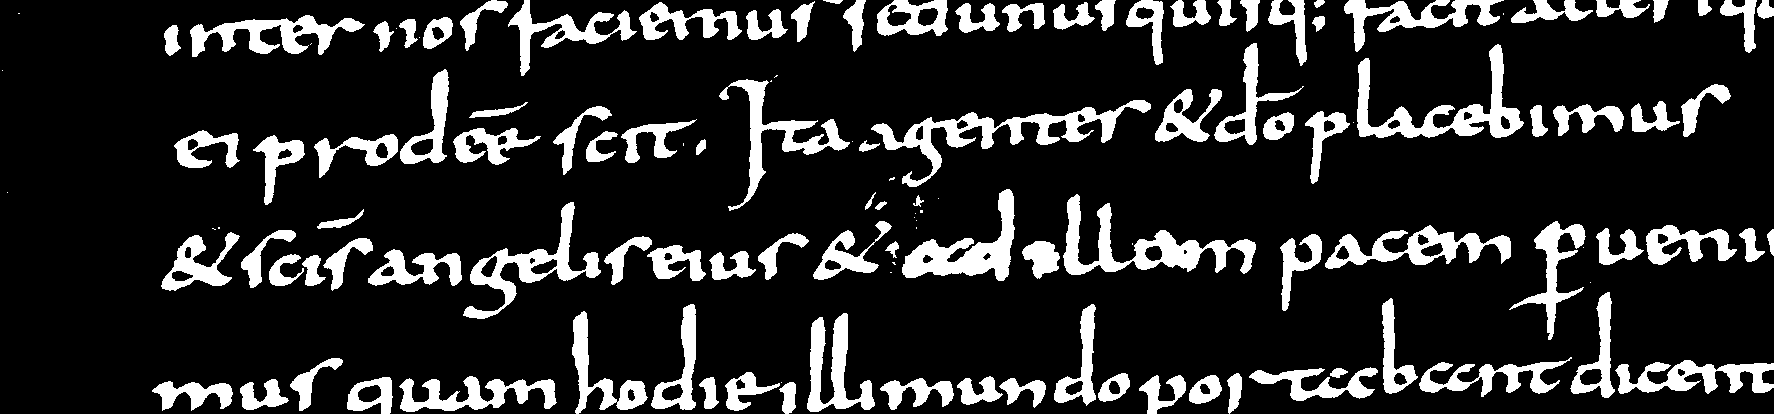 inter nos faciemus sed unusquisq; facit alteri
ei prodeēe scit. Ita agentes & dō placebimus
& scīs angelis eius & ad illam pacem ꝑueni
mus quam hodie illi mundo portabant dicent